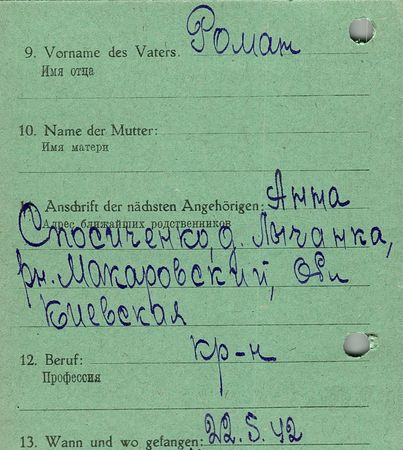 9. Vorname des Vaters. Роман
Имя отца
10. Name der Mutter:
Имя матери
Anschrift der nächsten Angehörigen: Анна
Адрес ближайших родственников
Спосиченко, д. Лычанка,
рн. Макаровский, Обл
Киевская
12. Beruf: кр-н
Профессия
13. Wann und wo gefangen: 22. 5. 42